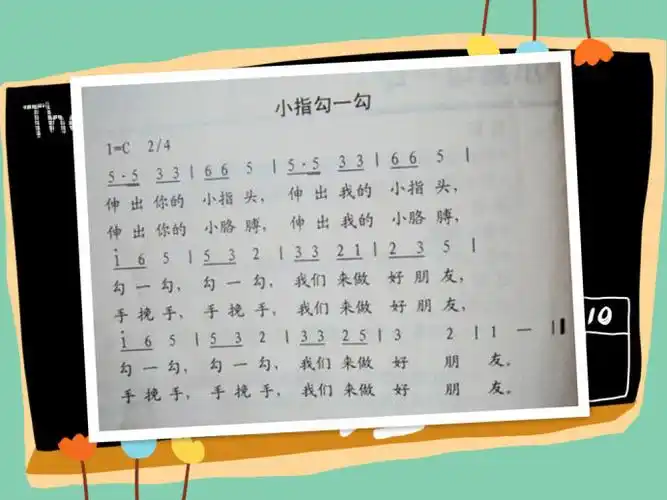 The
小指勾一勾
1=C 2/4
5·5 3 3 | 6 6 5 | 5·5 3 3 | 6 6 5 |
伸出你的 小指头, 伸出我的 小指头,
伸出你的 小胳膊, 伸出我的 小胳膊,
i 6 5 | 5 3 2 | 3 3 2 1 | 2 3 5 |
勾一勾, 勾一勾, 我们来做 好朋友,
手挽手, 手挽手, 我们来做 好朋友,
i 6 5 | 5 3 2 | 3 3 2 5 | 3 2 | 1 — ||
勾一勾, 勾一勾, 我们来做 好 朋 友。
手挽手, 手挽手, 我们来做 好 朋 友。
10